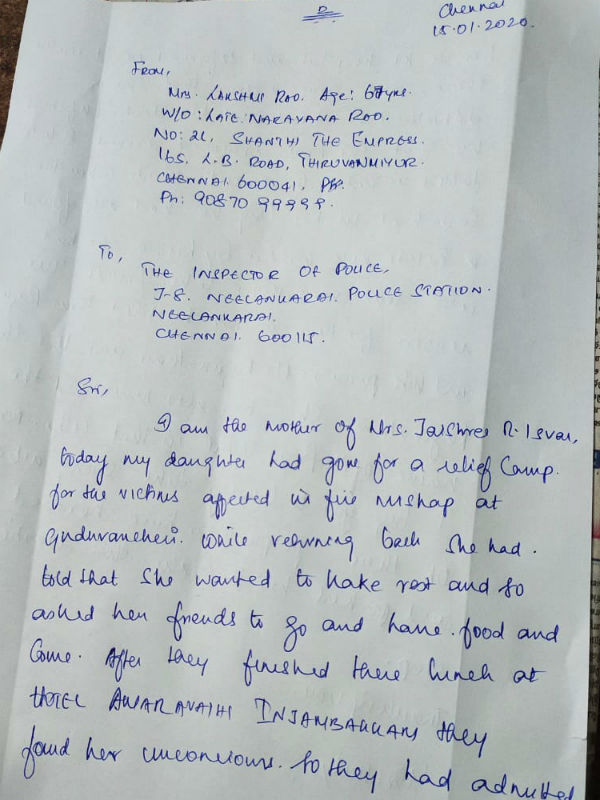 Chennai
15.01.2020.
From,
Mrs. LAKSHMI RAO. Age: 67yrs.
W/O: LATE. NARAYANA RAO.
NO: 2L, SHANTHI THE EMPRESS.
165. L.B. ROAD, THIRUVANMIYUR.
CHENNAI 600041.
Ph: 90870 99999.
To,
THE INSPECTOR OF POLICE,
J-8. NEELANKARAI. POLICE STATION.
NEELANKARAI.
CHENNAI. 600115.
Sir,
I am the mother of Mrs. Jaishree R. Isvar,
today my daughter had gone for a relief Camp.
for the victims affected in fire mishap at
Guduvancheri. While returning back she had.
told that She wanted to take rest and so
asked her friends to go and have. food and
Come. After they finished there lunch at
HOTEL AMARAVATHI INJAMBAKKAM they
found her unconcious. So they had admitted